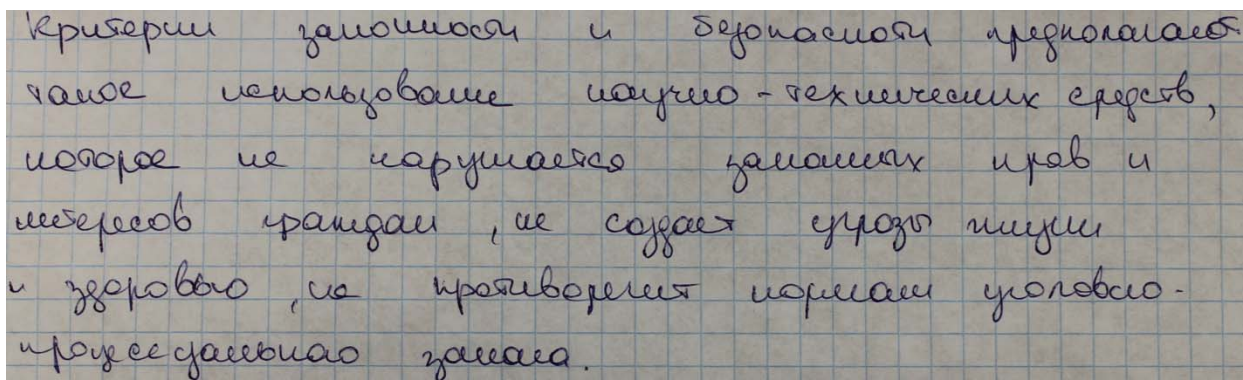 Критерии законности и безопасности предполагают
такое использование научно-технических средств,
которое не нарушается законных прав и
интересов граждан, не создает угрозы жизни
и здоровью, не противоречит нормам уголовно-
процессуального закона.